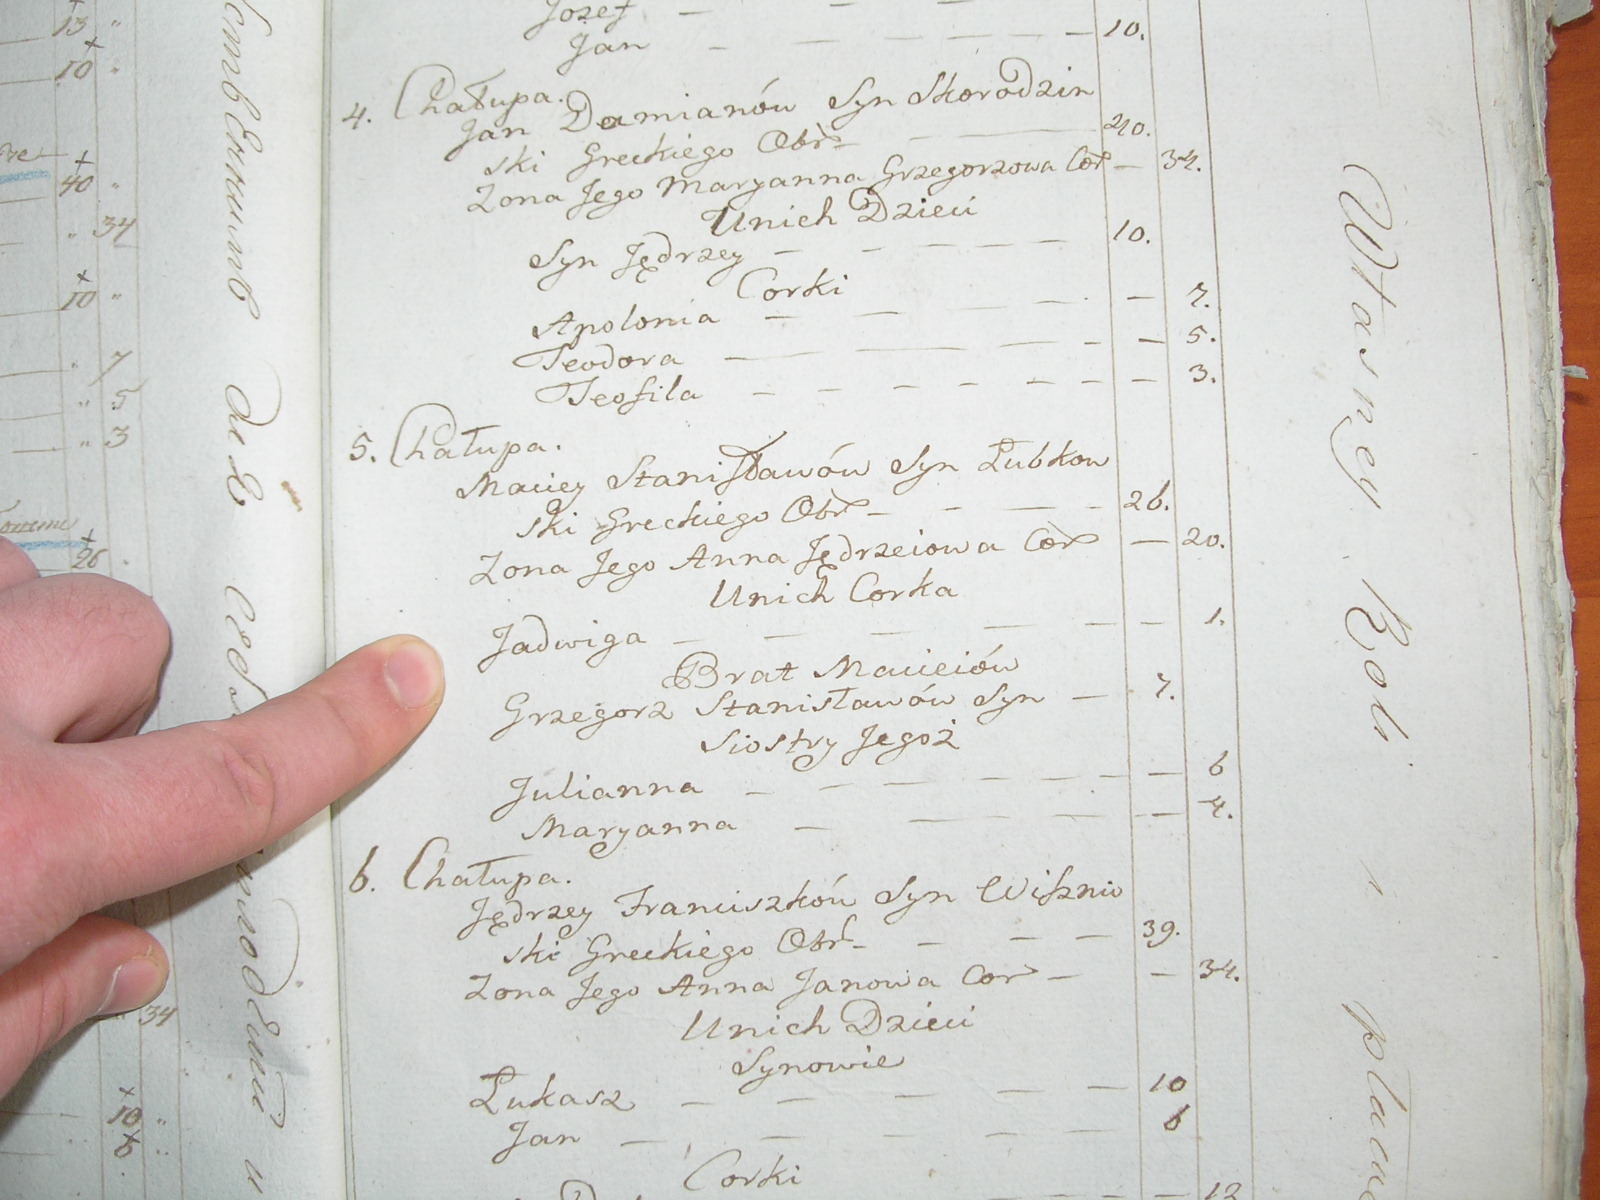 Jozef
Jan — — — — — 10.
4. Chałupa.
Jan Damianów Syn Skorodzin
ski Greckiego Obr — 40.
Zona Jego Maryanna Grzegorzowa Cor — 34.
Unich Dzieci
Syn Jędrzey — — — — 10.
Corki
Apolonia — — — — 7.
Teodora — — — — 5.
Teofila — — — — — — — 3.
5. Chałupa.
Maciey Stanisławów Syn Łubkow
ski Greckiego Obr — — — — 26.
Zona Jego Anna Jędrzeiowa Cor — 20.
Unich Corka
Jadwiga — — — — — — 1.
Brat Macieiów
Grzegorz Stanisławów Syn — 7.
Siostry Jegoż
Julianna — — — — — — — 6
Maryanna — — — — — 4.
6. Chałupa.
Jędrzey Franciszków Syn Wisznio
ski Greckiego Obr — — — — 39.
Zona Jego Anna Janowa Cor — — 34.
Unich Dzieci
Synowie
Łukasz — — — — — 10
Jan — — — — — 6
Corki
12
13
10
40
34
10
7
5
3
26
34
10
6
Własney Roli i